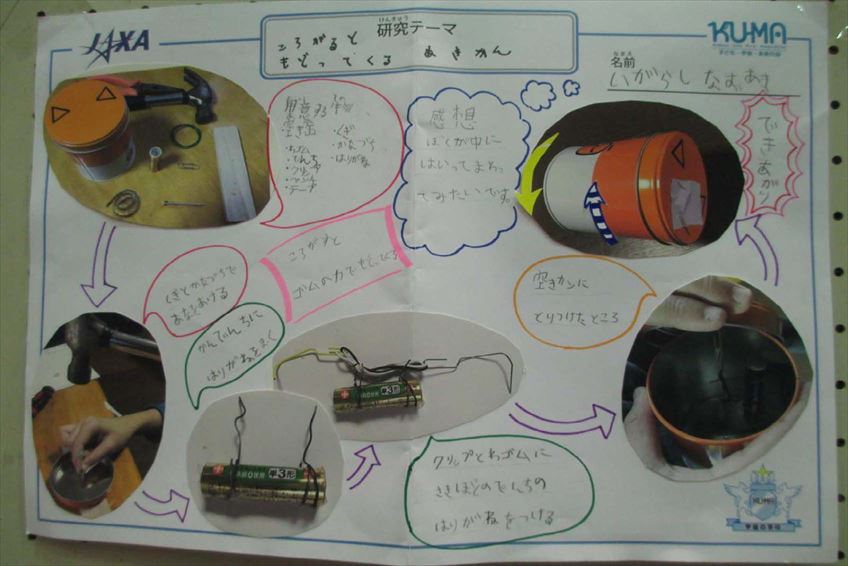 JAXA
けんきゅう
研究テーマ
ころがると
もどってくる あきかん
KU-MA
子ども・宇宙・未来の会
なまえ
名前
いがらし
用意する物
空き缶
・わゴム
・でんち
・クリップ
・テープ
・くぎ
・かなづち
・はりがね
感想
ぼくが中に
はいってまわっ
てみたいです。
できあがり
ころがすと
ゴムの力でもどってくる
くぎとかなづちで
あなをあける
かんでんちに
はりがねをまく
空きカンに
とりつけたところ
単3形
単3形
クリップとわゴムに
さきほどのでんちの
はりがねをつける
KU-MA
宇宙の学校